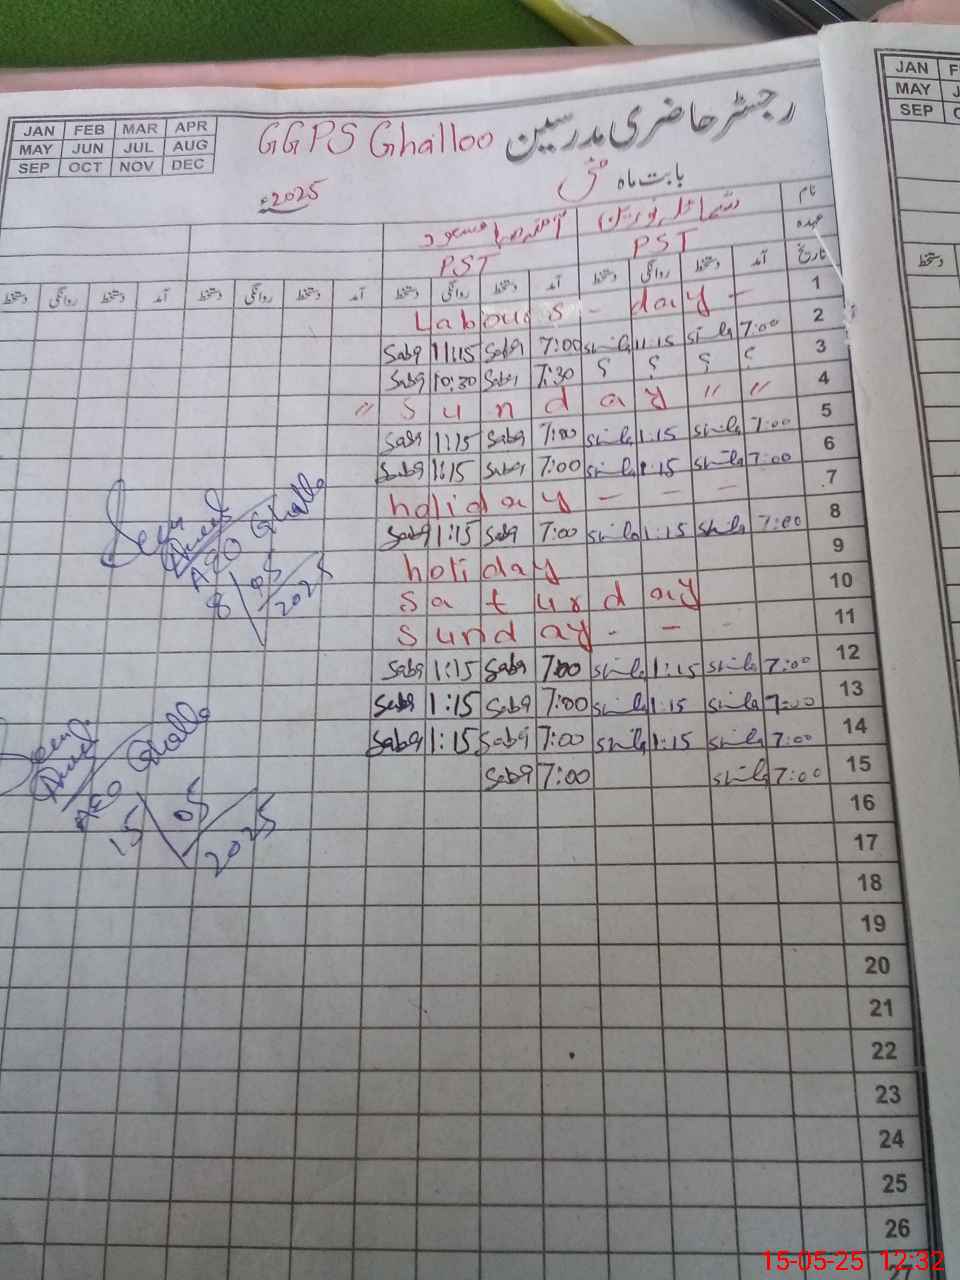 JAN FEB MAR APR
MAY JUN JUL AUG
SEP OCT NOV DEC
GGPS Ghalloo رجسٹر حاضری مدرسین
بابت ماہ مئی
2025ء
JAN
MAY
SEP
نام
عہدہ PST PST
تاریخ آمد دستخط روانگی دستخط آمد دستخط روانگی دستخط آمد دستخط روانگی دستخط آمد دستخط روانگی دستخط
دستخط
1 Labours - day -
2 7:00 11:15 7:00 Saba 11:15 Saba
3 ؟ ؟ ؟ ؟ 7:30 Saba 10:30 Saba
4 " s u n d a y " "
5 7:00 1:15 7:00 Saba 1:15 Saba
6 7:00 1:15 7:00 Saba 1:15 Saba
7 holiday - - -
8 7:00 1:15 7:00 Saba 1:15 Saba
9 holiday
10 Saturday
11 Sunday - -
12 7:00 1:15 7:00 Saba 1:15 Saba
13 7:00 1:15 7:00 Saba 1:15 Saba
14 7:00 1:15 7:00 Saba 1:15 Saba
15 7:00 7:00 Saba
16
17
18
19
20
21
22
23
24
25
26
Seen
AEO Ghallo
8/05/2025
Seen
AEO Ghallo
15/05/2025
15-05-25 12:32